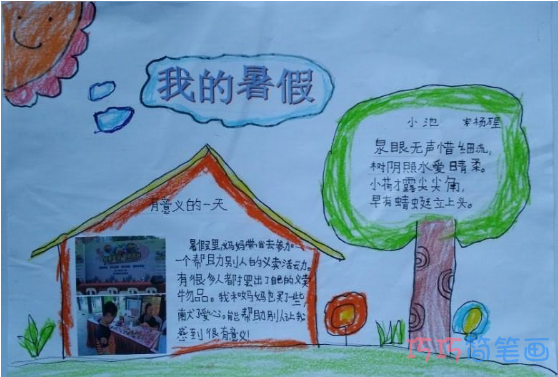 我的暑假
小池 宋杨程
泉眼无声惜细流,
树阴照水爱晴柔。
小荷才露尖尖角,
早有蜻蜓立上头。
有意义的一天
暑假里,妈妈带我去参加
一个帮助别人的义卖活动。
有很多人都拿出了自己的义卖
物品。我和妈妈也买了一些,
献了爱心,能帮助别人让我
感到很有意义!
巧巧简笔画